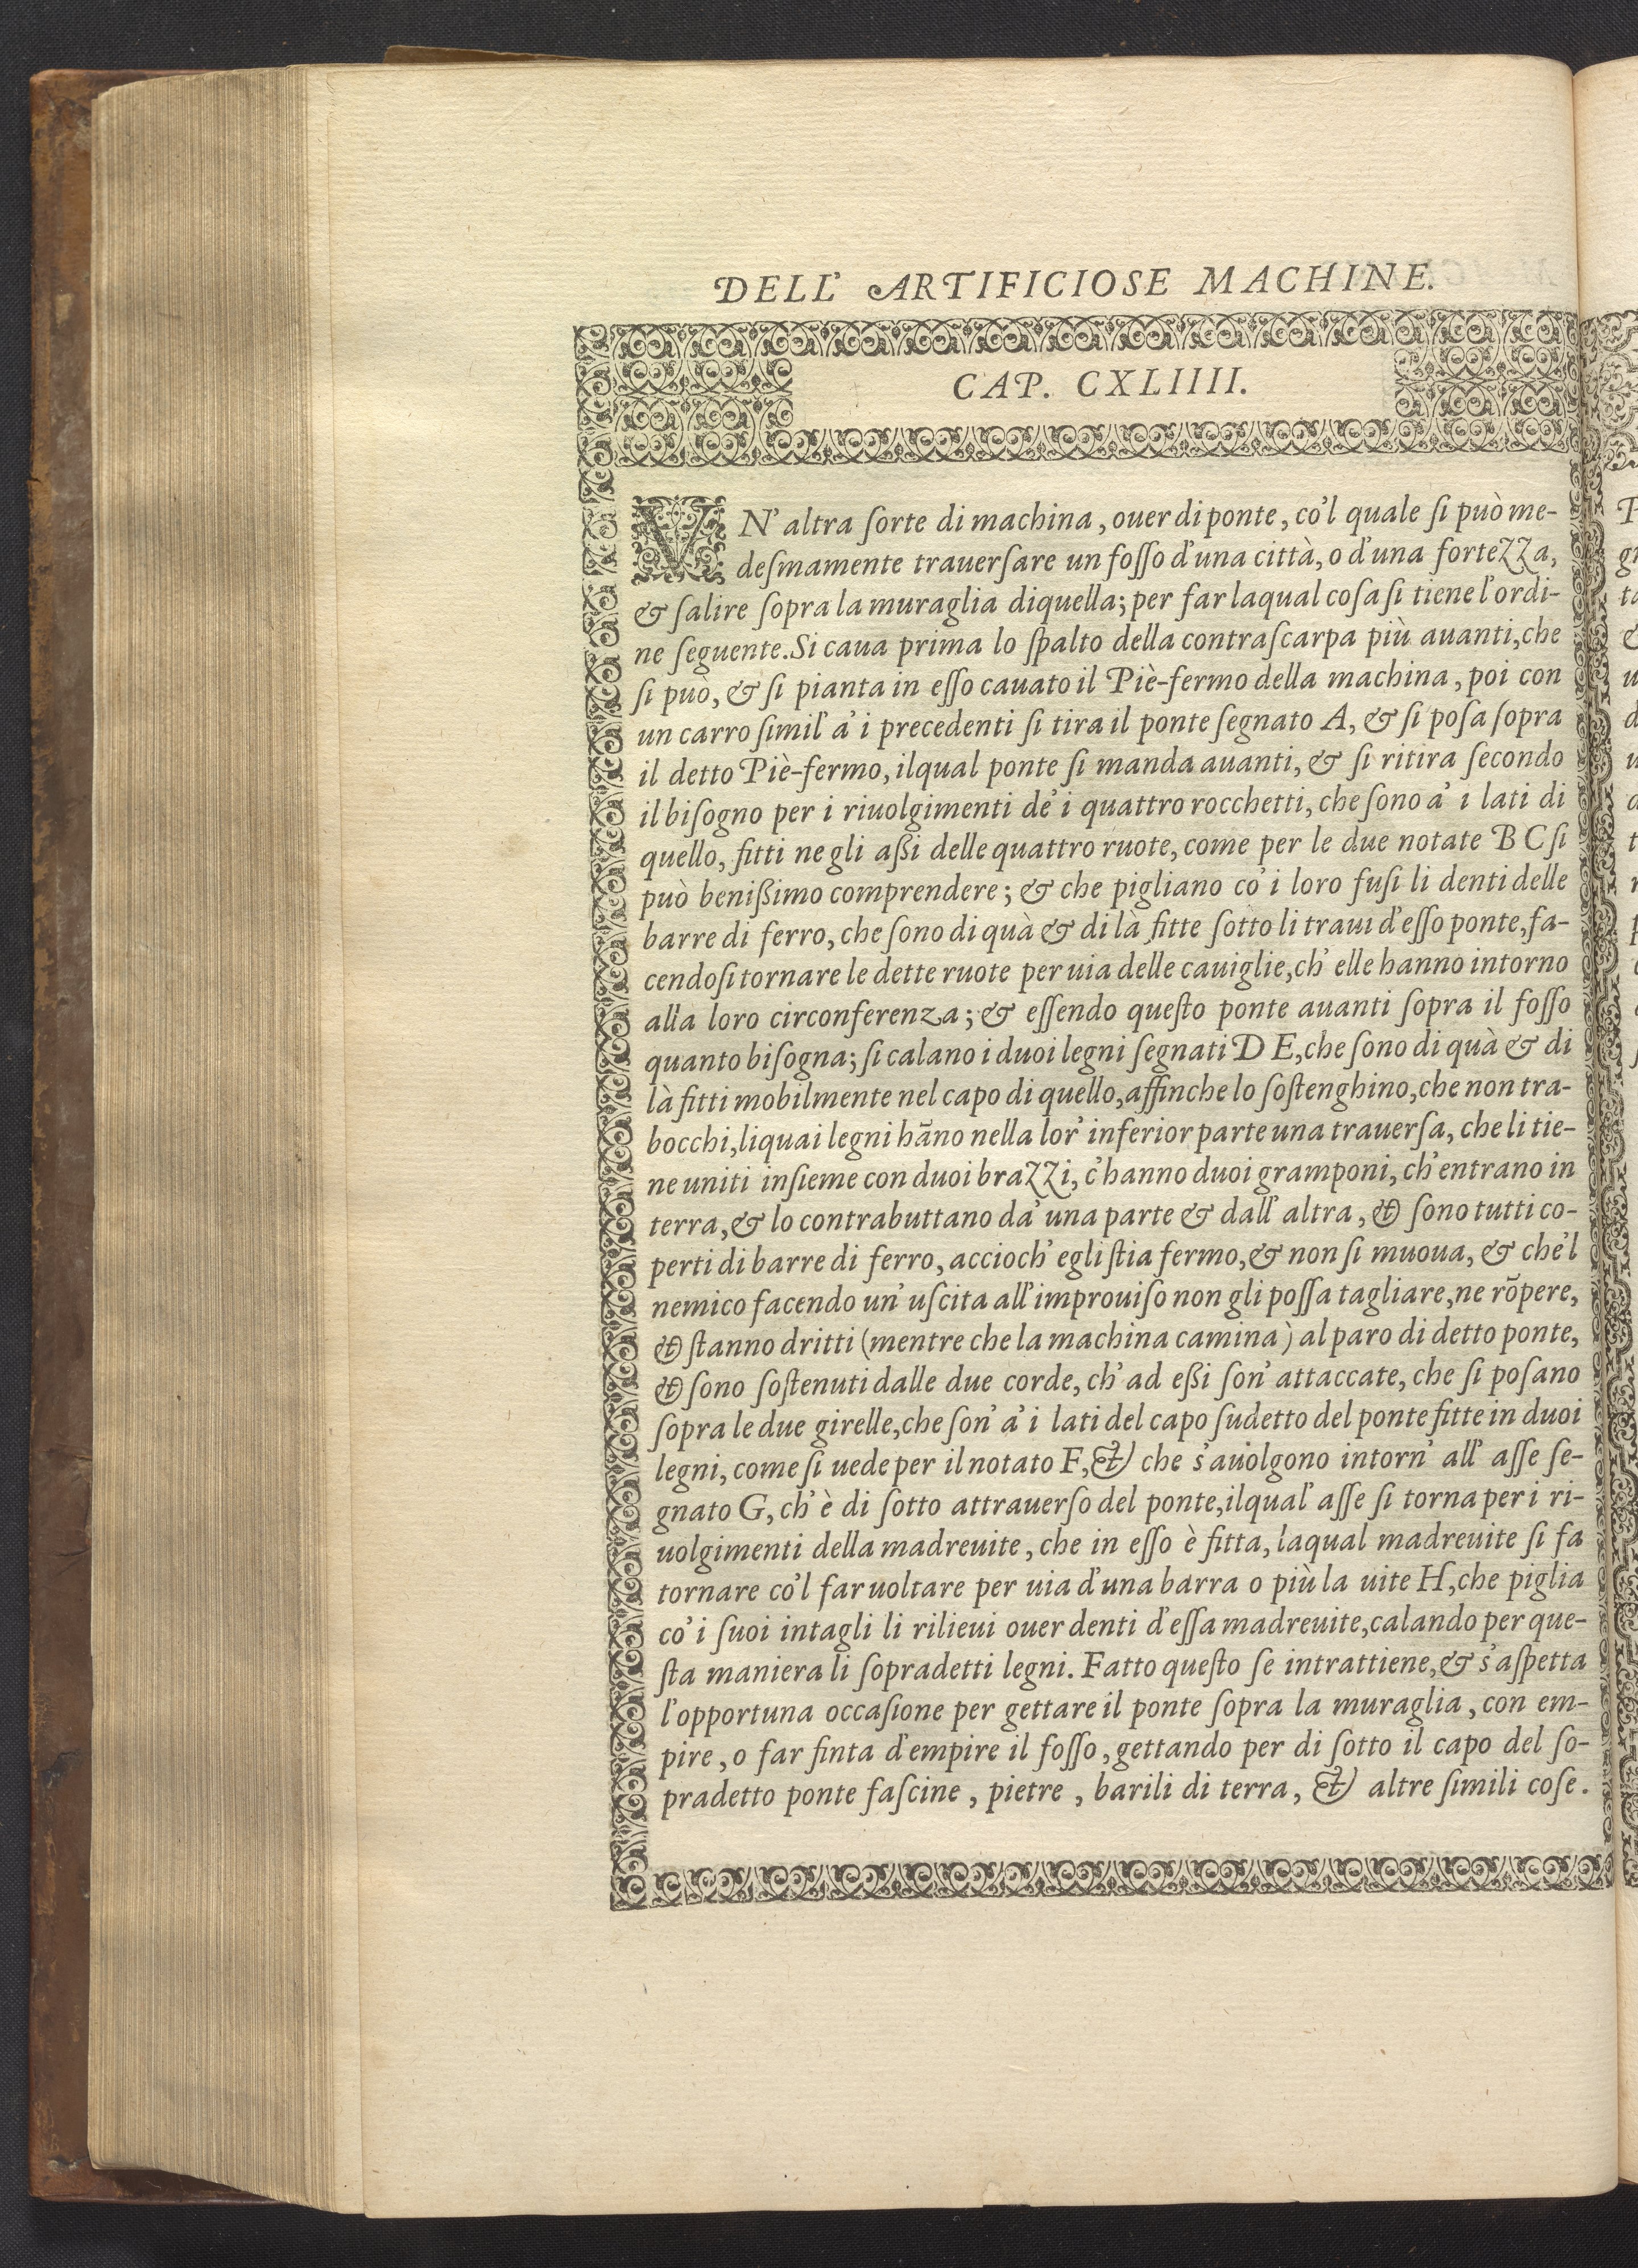 DELL' ARTIFICIOSE MACHINE.
CAP. CXLIIII.
VN' altra ſorte di machina, ouer di ponte, co'l quale ſi può me-
deſmamente trauerſare un foſſo d'una città, o d'una fortezza,
& ſalire ſopra la muraglia di quella; per far laqual coſa ſi tiene l'ordi-
ne ſeguente. Si caua prima lo ſpalto della contraſcarpa più auanti, che
ſi può, & ſi pianta in eſſo cauato il Piè-fermo della machina, poi con
un carro ſimil' a' i precedenti ſi tira il ponte ſegnato A, & ſi poſa ſopra
il detto Piè-fermo, ilqual ponte ſi manda auanti, & ſi ritira ſecondo
il biſogno per i riuolgimenti de' i quattro rocchetti, che ſono a' i lati di
quello, fitti ne gli aßi delle quattro ruote, come per le due notate B C ſi
può benißimo comprendere; & che pigliano co' i loro fuſi li denti delle
barre di ferro, che ſono di quà & di là fitte ſotto li traui d'eſſo ponte, fa-
cendoſi tornare le dette ruote per uia delle cauiglie, ch' elle hanno intorno
alla loro circonferenza; & eſſendo queſto ponte auanti ſopra il foſſo
quanto biſogna; ſi calano i duoi legni ſegnati D E, che ſono di quà & di
là fitti mobilmente nel capo di quello, affinche lo ſoſtenghino, che non tra-
bocchi, liquai legni hāno nella lor' inferior parte una trauerſa, che li tie-
ne uniti inſieme con duoi brazzi, c'hanno duoi gramponi, ch'entrano in
terra, & lo contrabuttano da' una parte & dall' altra, & ſono tutti co-
perti di barre di ferro, accioch' egli ſtia fermo, & non ſi muoua, & che'l
nemico facendo un' uſcita all'improuiſo non gli poſſa tagliare, ne rōpere,
& ſtanno dritti (mentre che la machina camina) al paro di detto ponte,
& ſono ſoſtenuti dalle due corde, ch' ad eßi ſon' attaccate, che ſi poſano
ſopra le due girelle, che ſon' a' i lati del capo ſudetto del ponte fitte in duoi
legni, come ſi uede per il notato F, & che s'auolgono intorn' all' aſſe ſe-
gnato G, ch' è di ſotto attrauerſo del ponte, ilqual' aſſe ſi torna per i ri-
uolgimenti della madreuite, che in eſſo è fitta, laqual madreuite ſi fa
tornare co'l far uoltare per uia d'una barra o più la uite H, che piglia
co' i ſuoi intagli li rilieui ouer denti d'eſſa madreuite, calando per que-
ſta maniera li ſopradetti legni. Fatto queſto ſe intrattiene, & s'aſpetta
l'opportuna occaſione per gettare il ponte ſopra la muraglia, con em-
pire, o far finta d'empire il foſſo, gettando per di ſotto il capo del ſo-
pradetto ponte faſcine, pietre, barili di terra, & altre ſimili coſe.